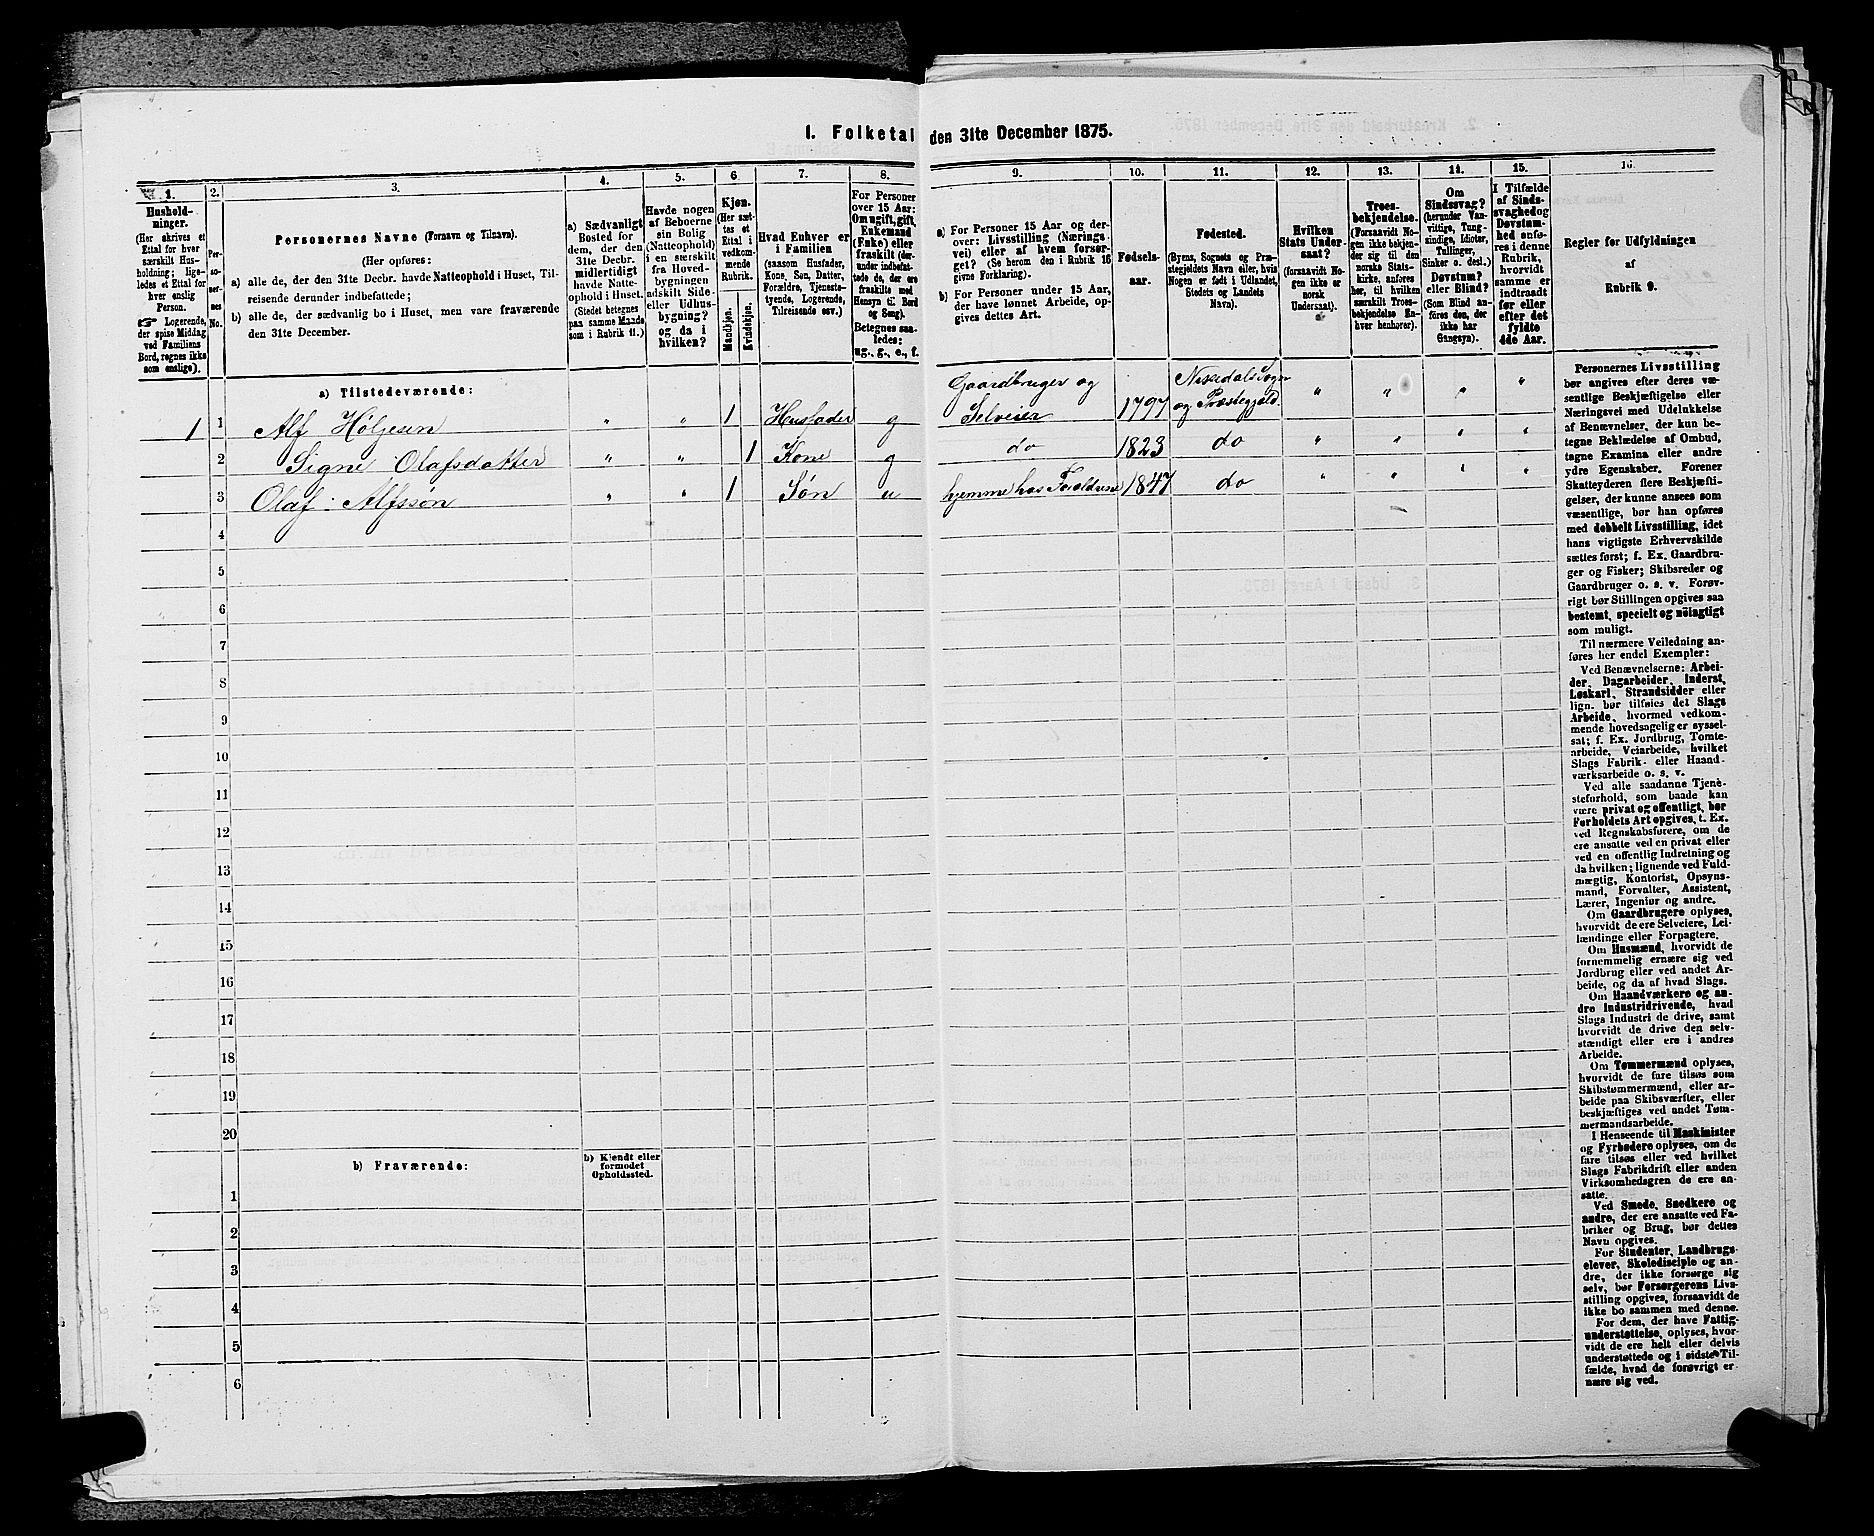 1. Folketal den 31te December 1875.
1.
Hushold-
ninger.
(Her skrives et
Ettal for hver
særskilt Hus-
holdning; lige-
ledes et Ettal for
hver enslig
Person.
☞ Logerende,
der spise Middag
ved Familiens
Bord, regnes ikke
som enslige).
2.
Per-
so-
ner-
nes
No.
3.
Personernes Navne (Fornavn og Tilnavn).
(Her opføres:
a) alle de, der den 31te Decbr. havde Natteophold i Huset, Til-
reisende derunder indbefattede;
b) alle de, der sædvanlig bo i Huset, men vare fraværende
den 31te December.
4.
a) Sædvanligt
Bosted for
dem, der den
31te Decbr.
midlertidigt
havde Natte-
ophold i Huset.
(Stedet betegnes
paa samme Maade
som i Rubrik 11.)
5.
Havde nogen
af Beboerne
sin Bolig
(Natteophold)
i en særskilt
fra Hoved-
bygningen
adskilt Side-
eller Udhus-
bygning?
og da i
hvilken?
6.
Kjøn.
(Her sæt-
tes et
Ettal i
vedkom-
mende
Rubrik.
Mandkjøn.
Kvindekjøn.
7.
Hvad Enhver er
i Familien
(saasom Husfader,
Kone, Søn, Datter,
Forældre, Tjeneste-
tyende, Logerende,
Tilreisende osv.)
8.
For Personer
over 15 Aar:
Om ugift, gift,
Enkemand
(Enke) eller
fraskilt (der-
under indbefat-
tede de, der ere
fraskilte med
Hensyn til Bord
og Seng).
Betegnes saa-
ledes:
ug., g., e., f.
9.
a) For Personer 15 Aar og der-
over: Livsstilling (Nærings-
vei) eller af hvem forsør-
get? (Se herom den i Rubrik 16
givne Forklaring).
b) For Personer under 15 Aar,
der have lønnet Arbeide, op-
gives dettes Art.
10.
Fødsels-
aar.
11.
Fødested.
(Byens, Sognets og Præ-
stegjeldets Navn eller, hvis
Nogen er født i Udlandet,
Stedets og Landets
Navn).
12.
Hvilken
Stats Under-
saat?
(forsaavidt No-
gen ikke er
norsk
Undersaat).
13.
Troes-
bekjendelse.
(Forsaavidt No-
gen ikke bekjen-
der sig til den
norske Stats-
kirke, anføres
her, til hvilken
særskilt Troes-
bekjendelse En-
hver henhører).
14.
Om
Sindssvag?
(herunder Van-
vittige, Tung-
sindige, Idioter,
Tullinger,
Sinker o. desl.)
Døvstum?
eller Blind?
(Som Blind an-
føres den, der
ikke har
Gangsyn).
15.
I Tilfælde
af Sinds-
svaghed og
Døvstum-
hed anfø-
res i denne
Rubrik,
hvorvidt
samme er
indtraadt
før eller
efter det
fyldte
4de Aar.
16.
Regler for Udfyldningen
af
Rubrik 9.
a) Tilstedeværende:
1 1 Alf Høljesen " " 1 Husfader g Gaardbruger og Selveier 1797 Nissedal Sogn og Præstegjæld. " " " "
2 Signe Olafsdatter " " 1 Kone g do 1823 do " " " "
3 Olaf Alfssøn " " 1 Søn u hjemme hos Forældrene 1847 do " " " "
4
5
6
7
8
9
10
11
12
13
14
15
16
17
18
19
20
b) Fraværende:
b) Kjendt eller
formodet
Opholdssted.
1
2
3
4
5
6
Personernes Livsstilling
bør angives efter deres væ-
sentlige Beskjæftigelse eller
Næringsvei med Udelukkelse
af Benævnelser, der kun be-
tegne Beklædelse af Ombud,
tagne Examina eller andre
ydre Egenskaber. Forener
Skatteyderen flere Beskjæfti-
gelser, der kunne ansees som
væsentlige, bør han opføres
med dobbelt Livsstilling, idet
hans vigtigste Erhvervskilde
sættes først; f. Ex. Gaardbru-
ger og Fisker; Skibsreder og
Gaardbruger o. s. v. Forøv-
rigt bør Stillingen opgives saa
bestemt, specielt og nöiagtigt
som muligt.
Til nærmere Veiledning an-
føres her endel Exempler:
Ved Benævnelserne: Arbei-
der, Dagarbeider, Inderst,
Løskarl, Strandsidder eller
lign. bør tilføies det Slags
Arbeide, hvormed vedkom-
mende hovedsagelig er syssel-
sat; f. Ex. Jordbrug, Tomte-
arbeide, Veiarbeide, hvilket
Slags Fabrik- eller Haand-
værksarbeide o. s. v.
Ved alle saadanne Tjene-
steforhold, som baade kan
være privat og offentligt, bør
Forholdets Art opgives, t. Ex.
ved Regnskabsførere, om de
ere ansatte ved en privat eller
ved en offentlig Indretning og
da hvilken; lignende ved Fuld-
mægtig, Kontorist, Opsyns-
mand, Forvalter, Assistent,
Lærer, Ingeniør og andre.
Om Gaardbrugere oplyses,
hvorvidt de ere Selveiere, Lei-
lændinge eller Forpagtere.
Om Husmænd, hvorvidt de
fornemmelig ernære sig ved
Jordbrug eller ved andet Ar-
beide, og da af hvad Slags.
Om Haandværkere og an-
dre Industridrivende, hvad
Slags Industri de drive, samt
hvorvidt de drive den selv-
stændigt eller ere i andres
Arbeide.
Om Tømmermænd oplyses,
hvorvidt de fare tilsøs som
Skibstømmermænd, eller ar-
beide paa Skibsværfter, eller
beskjæftiges ved andet Tøm-
mermandsarbeide.
I Henseende til Maskinister
og Fyrbødere oplyses, om de
fare tilsøs eller ved hvilket
Slags Fabrikdrift eller anden
Virksomhedsgren de ere an-
satte.
Ved Smede, Snedkere og
andre, der ere ansatte ved Fa-
briker og Brug, bør dettes
Navn opgives.
For Studenter, Landbrugs-
elever, Skoledisciple og an-
dre, der ikke forsørge sig
selv, bør Forsørgerens Livs-
stilling opgives, forsaavidt de
ikke bo sammen med denne.
For dem, der have Fattig-
understøttelse, oplyses, hvor-
vidt de ere helt eller delvis
understøttede og i sidste Til-
fælde, hvad de forøvrigt er-
nære sig ved.